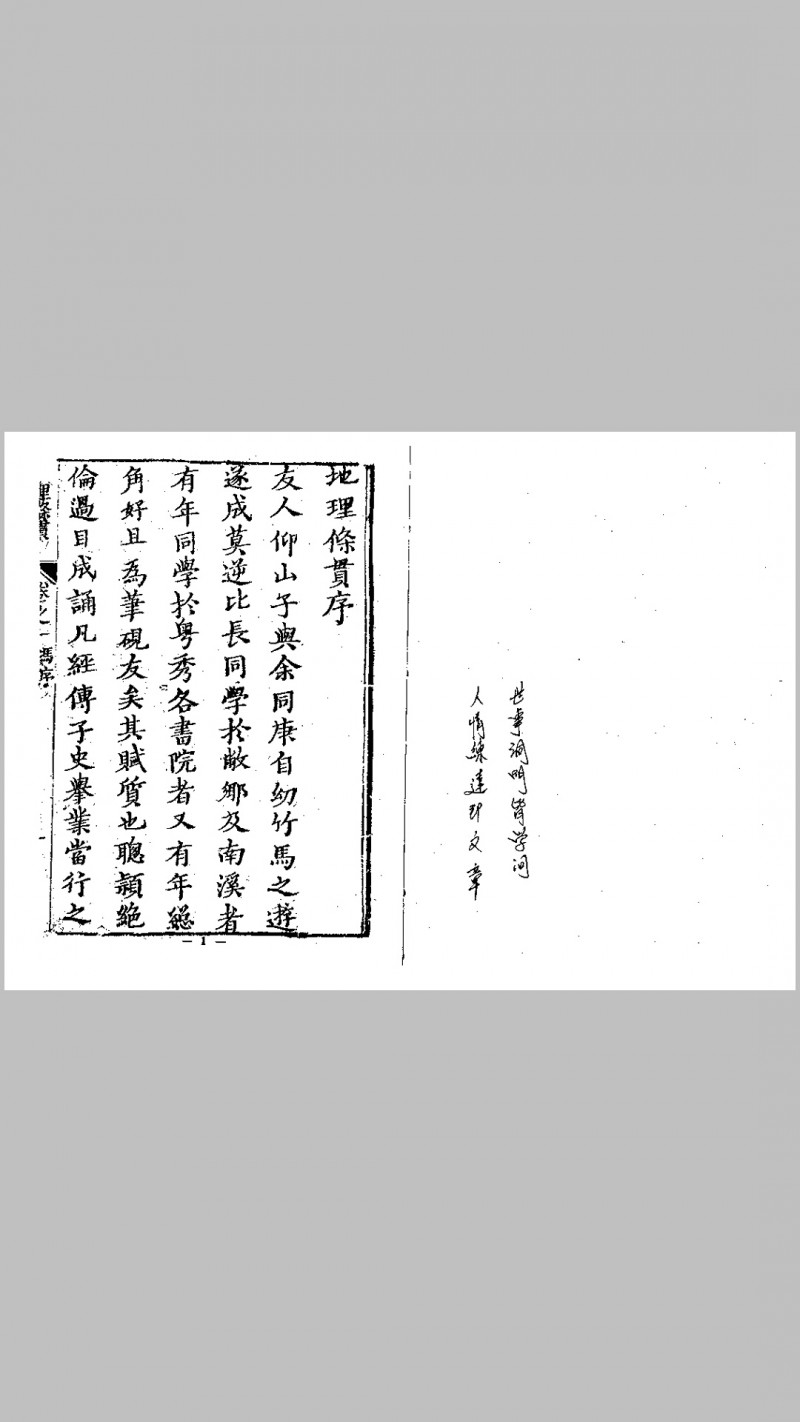 世事洞明皆学问
人情练达即文章
地理條貫序
友人仰山子與余同庚自幼竹馬之遊
遂成莫逆比長同學於敝鄉及南溪者
有年同學於粤秀各書院者又有年總
角好且為筆硯友矣其賦質也聰穎絕
倫過目成誦凡經傳子史舉業當行之
理條貫 卷之一 馮序
— 1 —